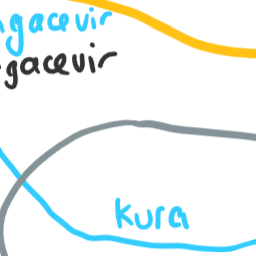 ngacevir
gacevir
kura